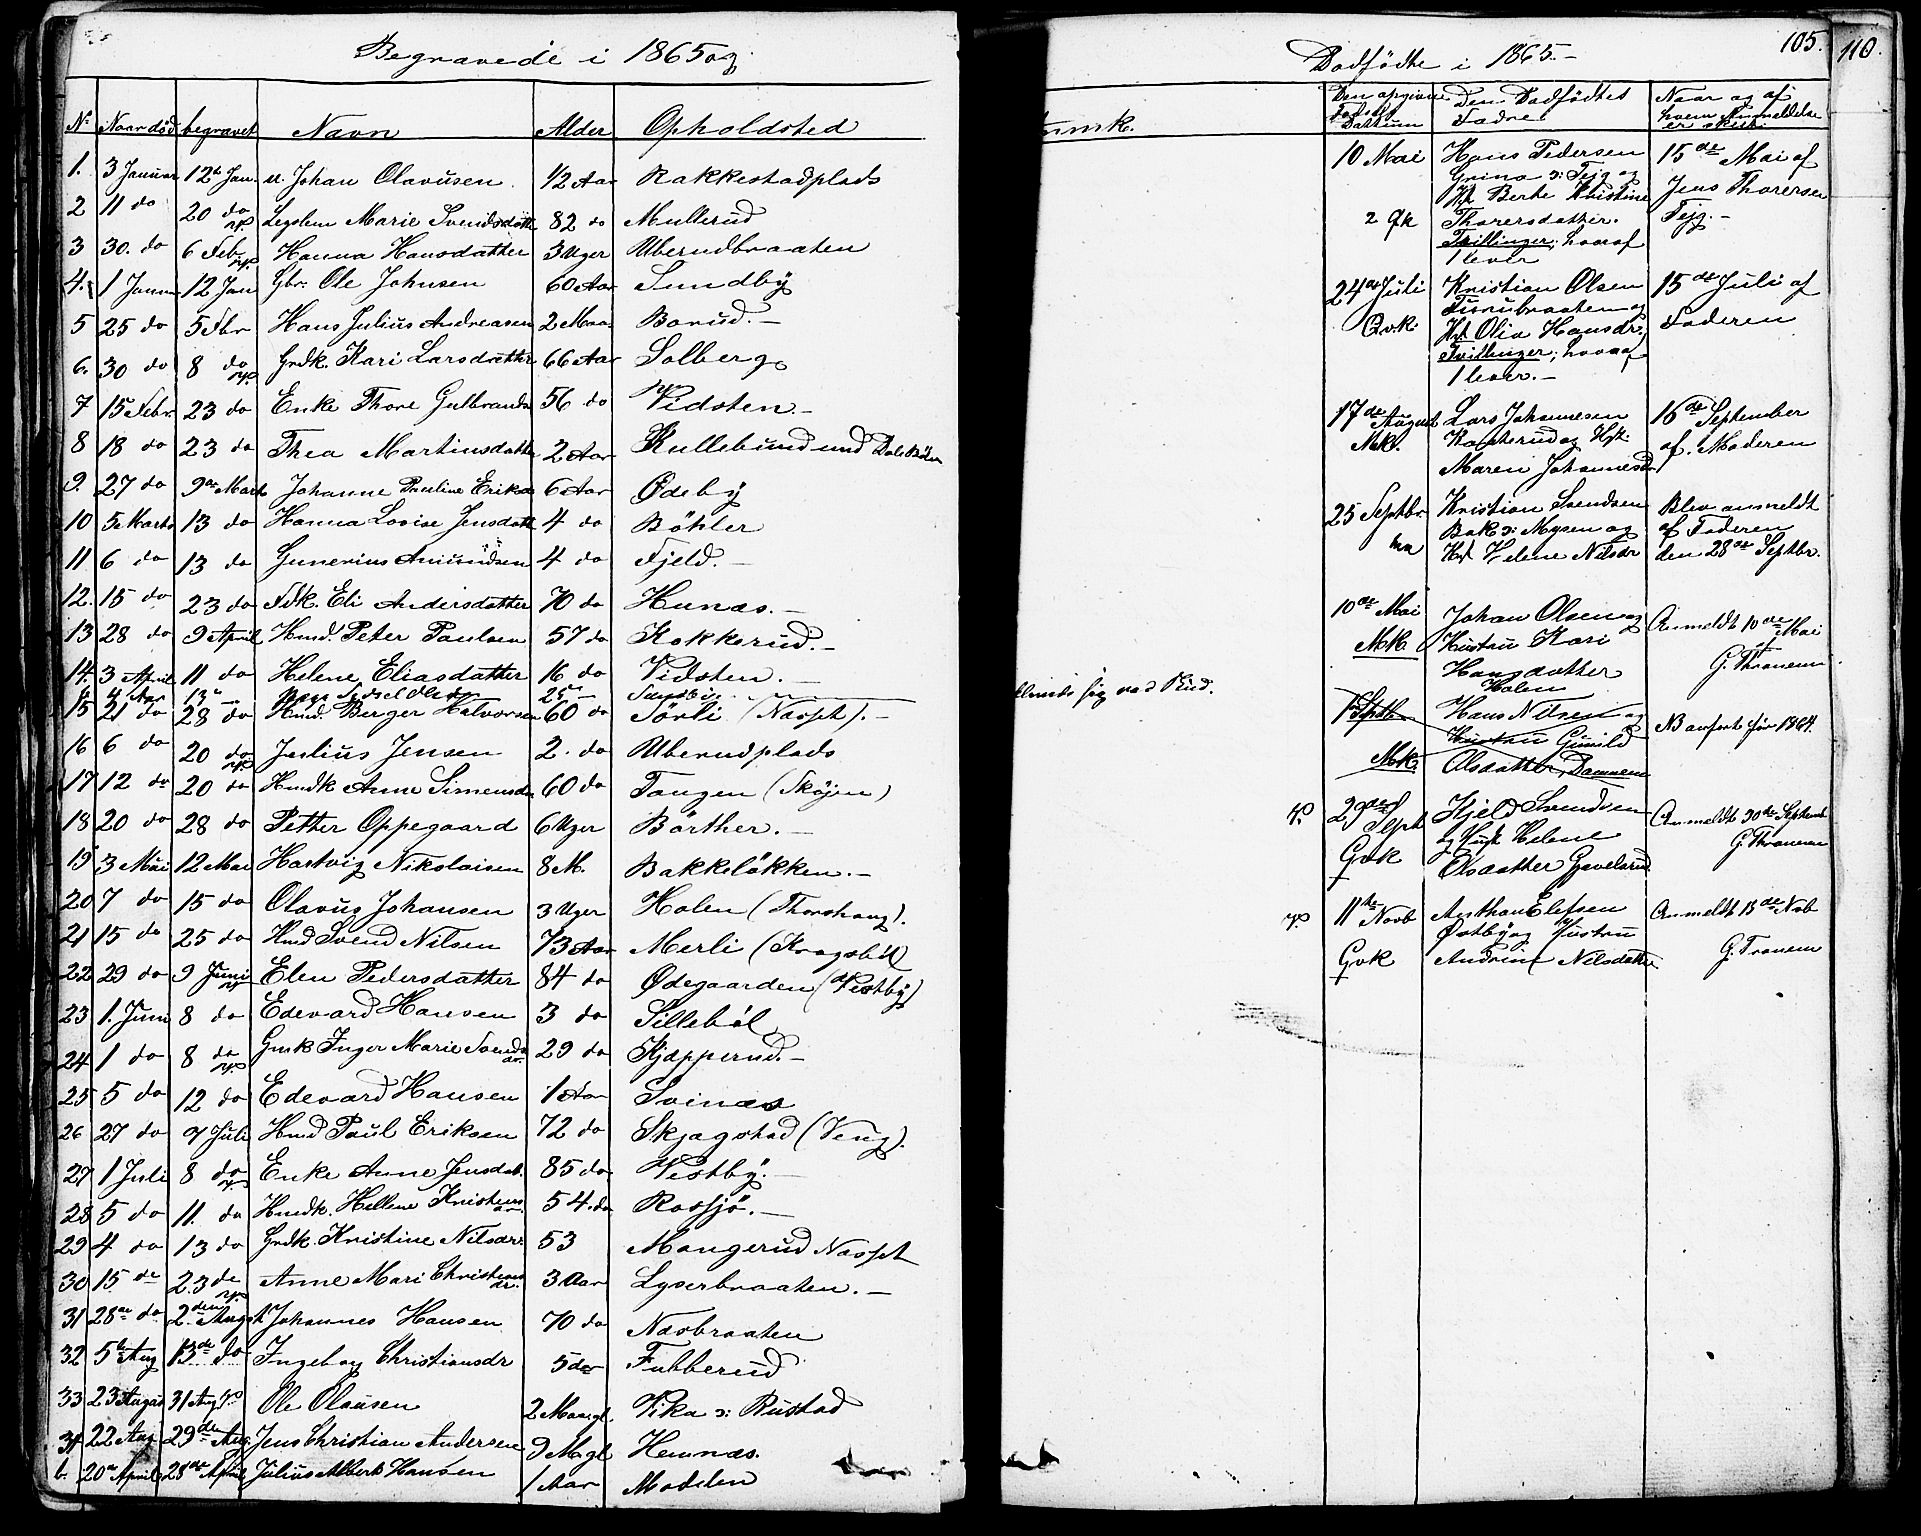 Begravede i 1865
N. Naar død begravet Navn Alder Opholdsted
1. 3 Januar 12te Jan. u. Johan Olavusen ½ Aar Rakkestadplads
2 11 do 20 do Legdem Marie Svendsdatt 82 do Mullerud
3 30. do 6 Feb Hanna Hansdatter 3 Uger Uberudbraaten
4. 1 Januar 12 Jan Gbr. Ole Johnsen 60 Aar Sundby
5 25 do 5 Fbr Hans Julius Andreasen 2 Maa. Borud.-
6. 30 do 8 do Grdk. Kari Larsdatter 66 Aar Solberg
7 15 Febr. 23 do Enke Thore Gulbrands 56 do Vidsten.-
8 18 do 23 do Thea Martinsdatter 2 Aar Kullebund und
9. 27 do 9de Marts Johanne Pauline Eriks 6 Aar Ødeby
10 5 Marts 13 do Hanna Lovise Jensdatt 4 do Böhler
11 6 do 13 do Gunerius Amundsen 4 do Fjeld.-
12. 15 do 23 do Fdk. Eli Andersdatter 70 do Hunæs.-
13 28 do 9 April Hmd. Peter Paulsen 57 do Kokkerud.-
14. 3 April 11 do Helene Eliasdatter 16 do Vidsten.-
15 21 do 28 do Hmd. Berger Halvorsen 60 do Sörli (Næspt).-
16 6 do 20 do Julius Jensen 2. do Uberudplads
17 12 do 20 do Hmdk Anne Simensd 60 do Tangen (Skøjen)
18 20 do 28 do Petter Oppegaard 6 Uger Börther.-
19 3 Mai 12 Mai Hartvig Nikolaisen 8 M. Bakkelökken.-
20 7 do 15 do Olavus Johansen 3 Uger Holen (Thorshaug).
21 15 do 25 do Hmd Svend Nilsen 73 Aar Merli (Kragsböl)
22 29 do 9 Juni Elen Pedersdatter 84 do Ødegaarden (Vestby)
23 1. Juni 8 do Edevard Hansen 3 do Silleböl
24 1 do 8 do Gmk Inger Marie Svendsdr. 29 do Kjapperud.-
25 5 do 12 do Edevard Hansen 1 Aar Svinæs
26 27 do 9 Juli Hmd Paul Eriksen 72 do Skjagstad (Veng).
27 1 Juli 8 do Enke Anne Jensdat. 85 do Vestby.-
28 5 do 11. do Hmdk. Hellene Kristensdr. 54. do Rosjö.-
29 4 do 13 do Grdk. Kristine Nilsdr. 53 Mangerud Næspt
30 15 de 23 de Anne Mari Christensdr. 3 Aar Lyserbraaten.-
31 28de do 2den Augst Johannes Hansen 70 do Næsbraaten
32 5te Aug 13de do Ingeborg Christiansdr 5 do Fubberud
33 23 August 31 Aug Ole Olausen 2 Maa gl. Vika o: Rustad
34 22 Aug 29de Aug. Jens Christian Andersen 9 M. gl Hemnæs.
b. 20de April 28de April Julius Albert Hansen 1 Aar Modelen
105. 110.
Dødfødte i 1865.-
Anmk.
Den opgivne Fødsels Dattum Den Dødfødtes Fadre Naar og af hvem Anmeldelse er skeet.
10 Mai Hans Pedersen 15de Mai af
Grina o: Tejg og Jens Thorersen
Hst Berte Kristine Tejg.-
2 Qk Thorersdatter.
Tvillinger, hvoraf
1 lever
24de Juli Kristian Olsen 15de Juli af
Tusrubraaten og Faderen
Qvk. Hst Olia Hansdr.
Tvillinger, hvoraf
1 lever.-
17de August Lars Johannesen 16de September
Mk. og Hst. af Moderen
Maren Johannesdr
25 Septbr. Kristian Svendsen Blev anmeldt
Bak o: Mysen og af Faderen
Hst Helene Nilsdr den 28de Septbr.
10de Mai Johan Olsen og Anmeldt 10de Mai
Mk. Hustru Kari G. Thronem
Hansdatter
Holen
1 Septb Hans Nilsen og NB anført før 1864.
Hustru Gunild
Mk. Olsdatter, Dammem
29de Sept Kjeld Svendsen Anmeldt 30te Septemb
og Hust Helene G. Thronem
Gvk Olsdatter Gjevelsrud
11te Novb Anthon Elefsen Anmeldt 15de Nvb
Østby og Hustru G. Tronem
Gvk Andrine Nilsdatter